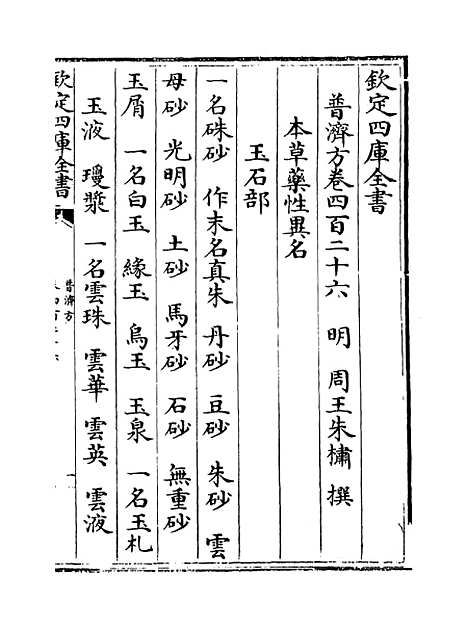 欽定四庫全書
普濟方卷四百二十六　明　周王朱橚　撰
本草藥性異名
玉石部
一名硃砂　作末名真朱　丹砂　豆砂　朱砂　雲
母砂　光明砂　土砂　馬牙砂　石砂　無重砂
玉屑　一名白玉　緣玉　烏玉　玉泉　一名玉札
玉液　瓊漿　一名雲珠　雲華　雲英　雲液
欽定四庫全書
普濟方